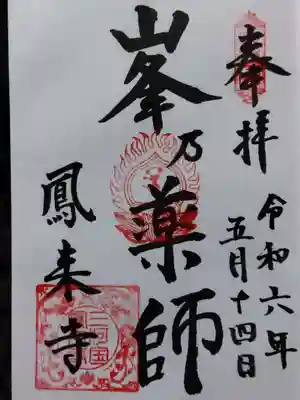 奉拝
令和六年
五月十四日
峯乃薬師
鳳来寺